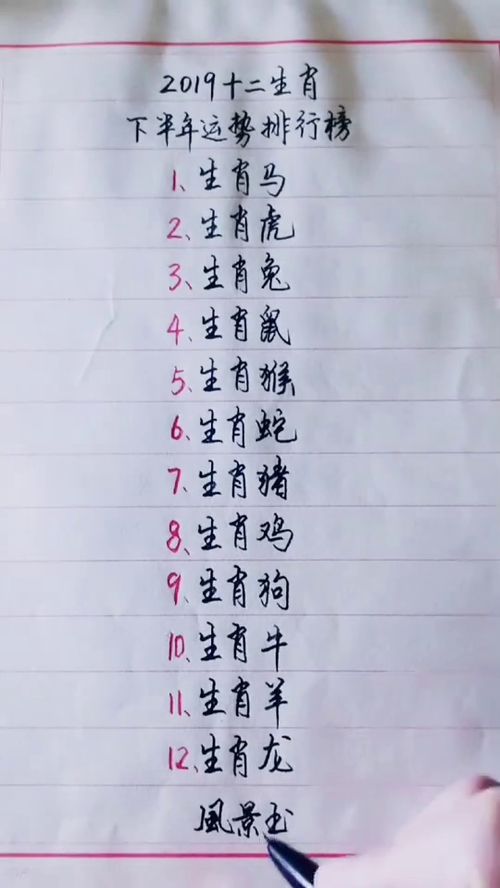 2019十二生肖
下半年运势排行榜
1、生肖马
2、生肖虎
3、生肖兔
4、生肖鼠
5、生肖猴
6、生肖蛇
7、生肖猪
8、生肖鸡
9、生肖狗
10、生肖牛
11、生肖羊
12、生肖龙
風景玉